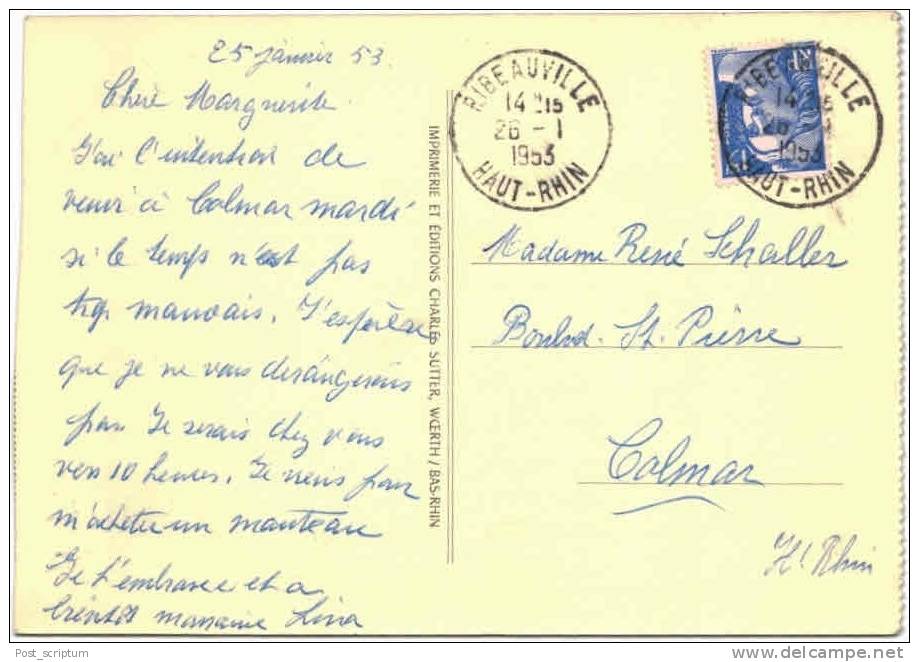 25 janvier 53
Chère Marguerite
J'ai l'intention de
venir à Colmar mardi
si le temps n'est pas
trop mauvais. J'espère
que je ne vous dérangerais
pas. Je serais chez vous
vers 10 heures. Je viens pour
m'acheter un manteau
Je t'embrasse et a
bientôt marraine Lina
IMPRIMERIE ET ÉDITIONS CHARLES SUTTER, WŒRTH / BAS-RHIN
RIBEAUVILLE
14 H15
26 - 1
1953
HAUT-RHIN
RIBEAUVILLE
14 15
26 1
1953
HAUT-RHIN
Madame René Schaller
Boulvd. St. Pierre
Colmar
Ht Rhin
Post_scriptum
www.delcampe.net